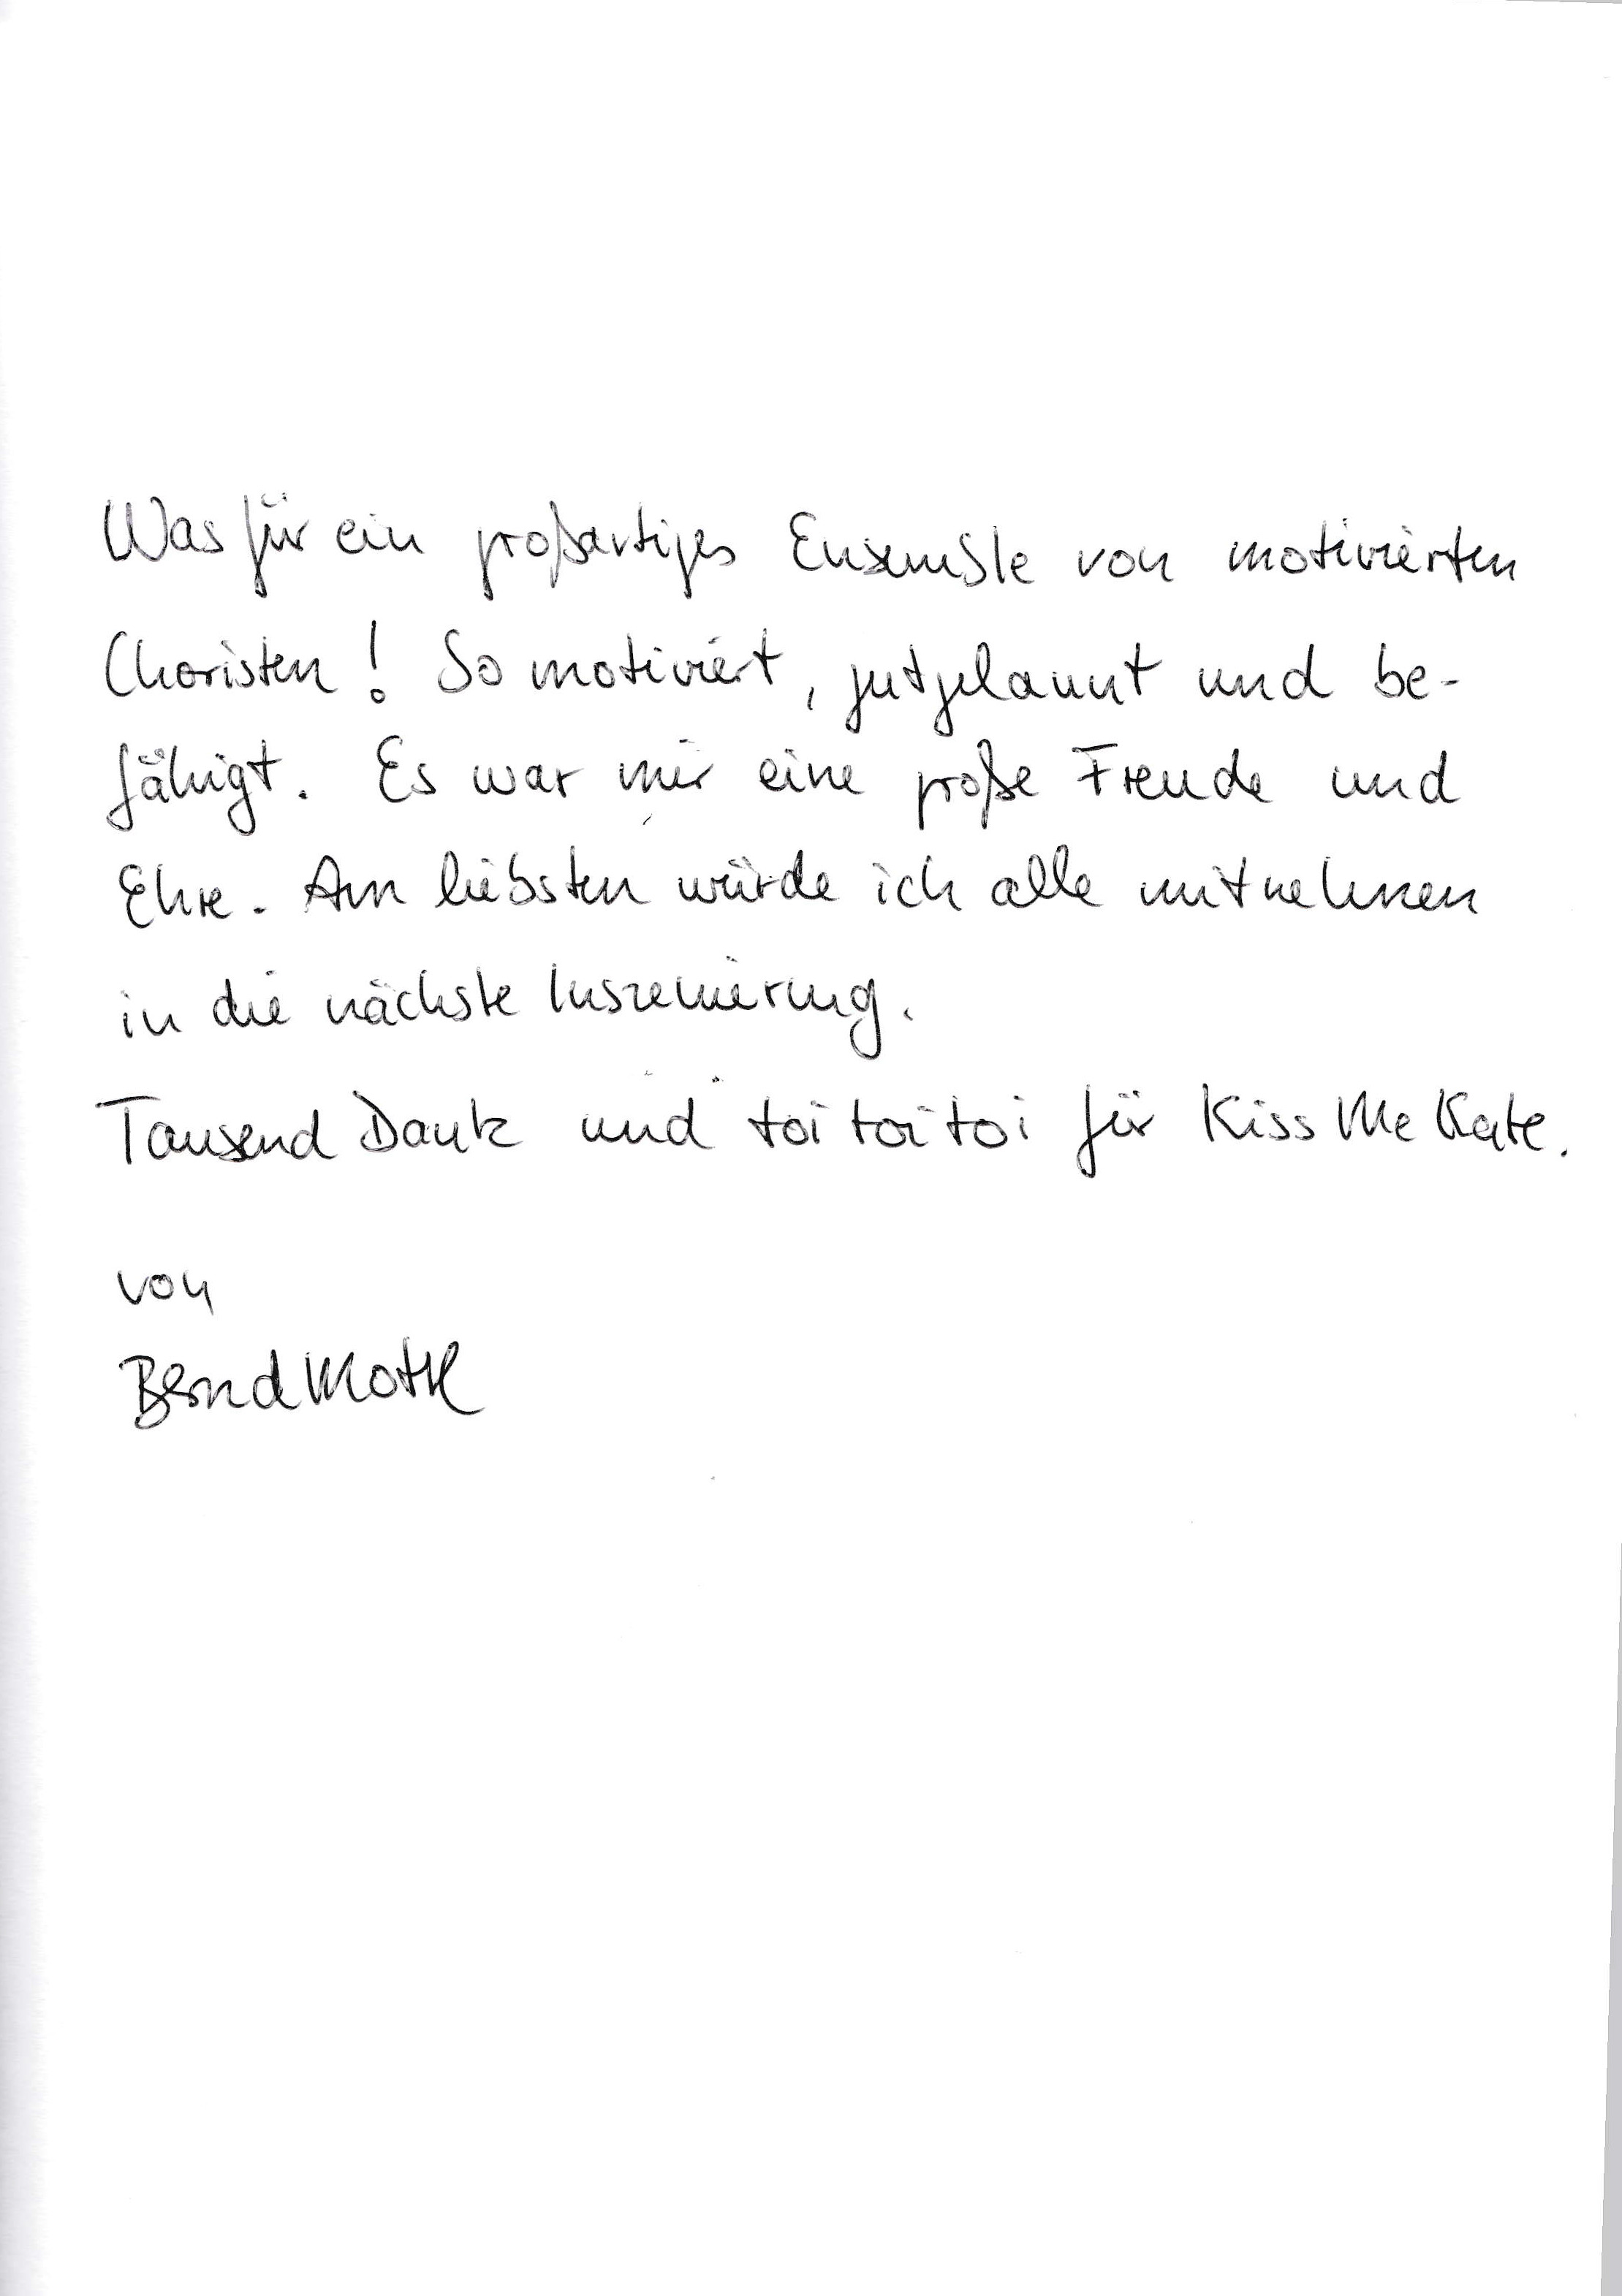 Was für ein großartiges Ensemble von motivierten
Choristen! So motiviert, gutgelaunt und be-
fähigt. Es war mir eine große Freude und
Ehre. Am liebsten würde ich alle mitnehmen
in die nächste Inszenierung.
Tausend Dank und toi toi toi für Kiss Me Kate.
von
Bernd Mottl